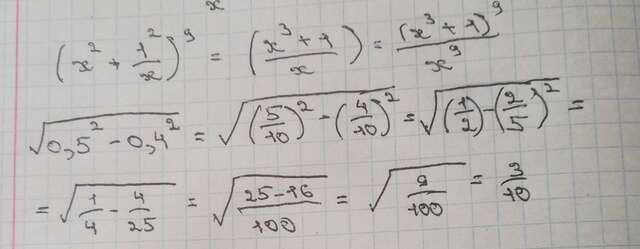 x
(x² + 1²/x)⁹ = (x³ + 1/x) = (x³ + 1)⁹/x⁹
√(0,5² - 0,4²) = √((5/10)² - (4/10)²) = √((1/2) - (2/5)²) =
= √(1/4 - 4/25) = √((25-16)/100) = √(9/100) = 3/10